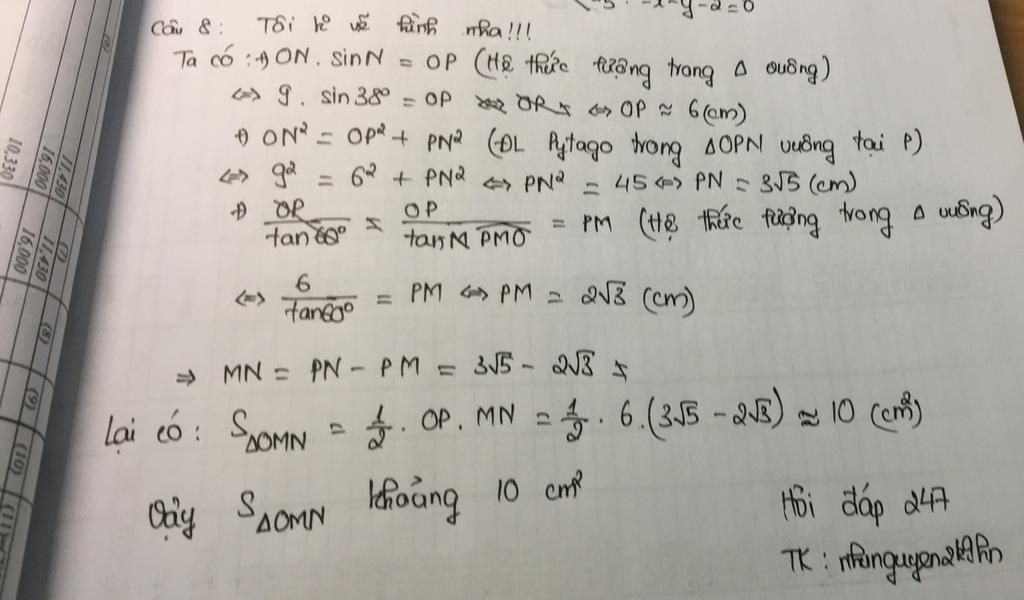 -x-y-2=0
Câu 8: Tôi k vẽ hình nha!!!
Ta có: +) ON. sinN = OP (Hệ thức lượng trong Δ vuông)
⇔ 9. sin38° = OP ⇔ OP ≈ 6(cm)
+) ON² = OP² + PN² (ĐL Pytago trong ΔOPN vuông tại P)
⇔ 9² = 6² + PN² ⇔ PN² = 45 ⇔ PN = 3√5 (cm)
+) OP/tan PMO = PM (Hệ thức lượng trong Δ vuông)
⇔ 6/tan60° = PM ⇔ PM = 2√3 (cm)
⇒ MN = PN - PM = 3√5 - 2√3
Lại có: SΔOMN = 1/2 . OP. MN = 1/2 . 6.(3√5 - 2√3) ≈ 10 (cm²)
Vậy SΔOMN khoảng 10 cm²
Hỏi đáp 247
TK:
11.430 (7) 11.430 (8) (9) (10)
16.000 16.000
10.330